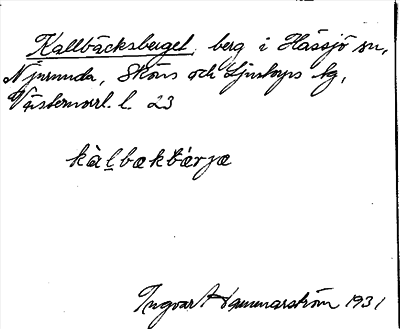 Kallbäcksberget, berg i Hässjö sn,
Njurunda, Sköns och Ljustorps tg,
Västernorrl. l. 23
kàl̠bækbǽrjæ
Ingvar Hammarström 1931